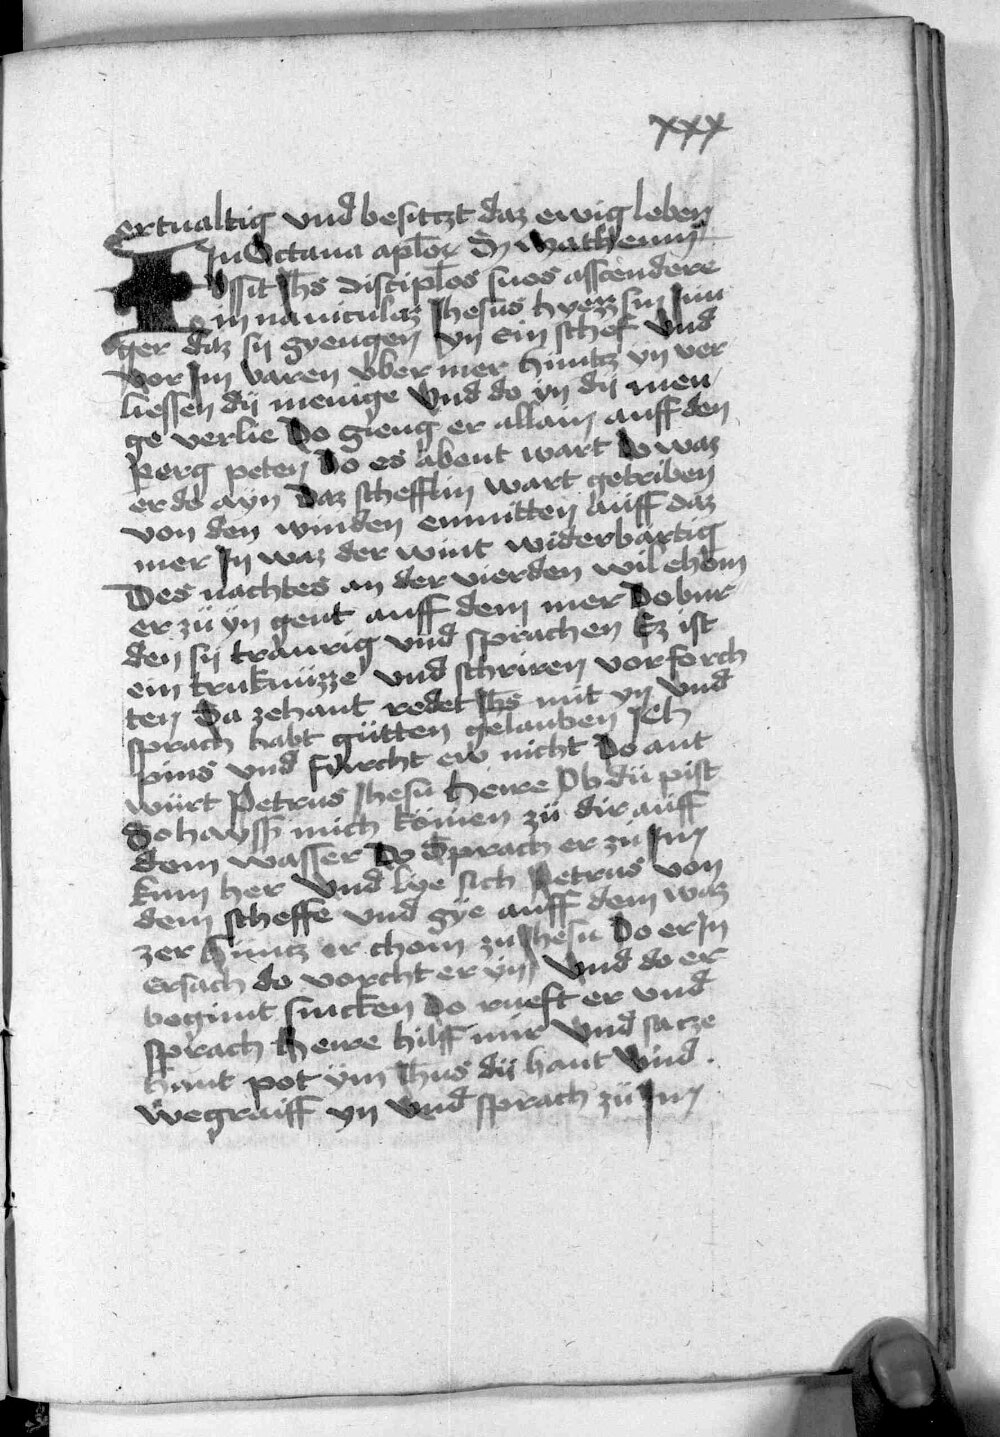 xxx
ertualtig vnd besitczt daz ewig leben
In Octaua aplor̄ S̄ Matheum
Iussit Jhs̄ discipl̄os suos asscendere
in nauiculaz Jhesus hyezz sin Jun
ger daz sy gyengen yn Ein schef vnd
vor Jm varen vber mer huntz yn ver
liessen dÿ menige Vnd do yn dÿ men
ge verlie Do gieng er allain auff den
perg peten Do es abent wart Do waz
er do ayn Daz schefflin wart getriben
von den winden enmitten auff daz
mer In waz der wint widerbartig
Des nachtes an der vierden wil chom
er zü yn gent auff dem mer Do bur
den sy traurig vnd sprachen Ez ist
ein truknüzze vnd schriren vor forch
ten Da zehant redet Jhs̄ mit yn vnd
sprach habt gütten gelauben Jch
pins vnd fürcht ew nicht Do ant
würt Petrus Jhesu herre Ob dü pist
So hayss mich kömen zü dir auff
dem wasser Do Sprach er zü Jm
kum her Vnd lye sich Petrus von
dem scheffe vnd gye auff dem waz
zer huntz er chom zu Jhesu Do er In
ersach do vorcht er yn Vnd do er
begunt sincken Do rueft er vnd
sprach Herre hilff mir Vnd sa cze
hant pot ym Jhus dÿ hant Vnd
wegraiff yn Vnd sprach zü Jm